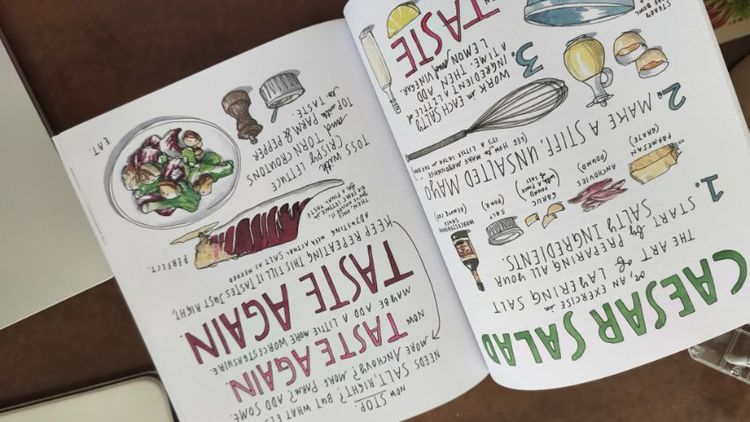 CAESAR SALAD
or, AN EXERCISE in
THE ART of LAYERING SALT
1. START by PREPARING ALL YOUR
SALTY INGREDIENTS.
PARMESAN
(GRATE)
ANCHOVIES
(POUND)
GARLIC
(POUND
with a PINCH
of SALT)
SALT
WORCESTERSHIRE
2. MAKE A STIFF, UNSALTED MAYO
3. WORK in EACH SALTY
INGREDIENT A LITTLE at
A TIME. THEN ADD
LEMON and VINEGAR.
THEN
TASTE
now STOP.
NEEDS SALT, RIGHT? BUT WHAT ELSE?
MORE ANCHOVY? MORE PARM? ADD SOME.
NOW TASTE AGAIN.
MAYBE ADD A LITTLE MORE WORCESTERSHIRE.
TASTE AGAIN.
KEEP REPEATING THIS TILL IT TASTES JUST RIGHT,
ADJUSTING WITH ACTUAL SALT AS NEEDED
PERFECT.
TOSS with
CRISPY LETTUCE
and TORN CROUTONS
TOP with PARM & PEPPER
to TASTE.
EAT.